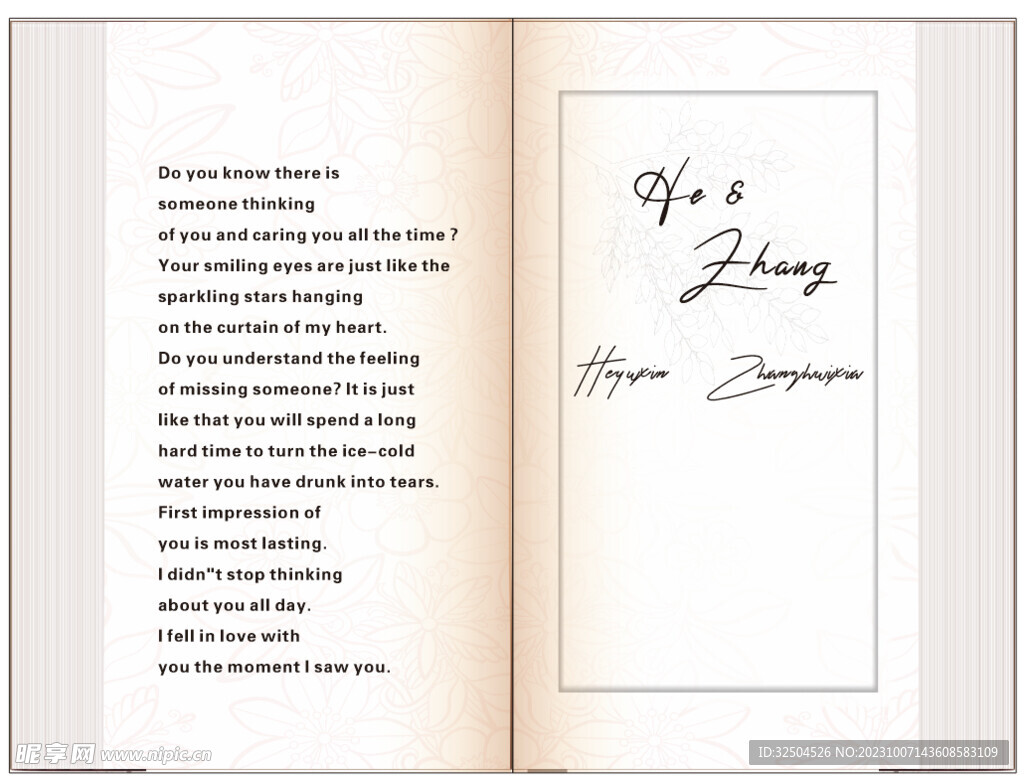 Do you know there is
someone thinking
of you and caring you all the time ?
Your smiling eyes are just like the
sparkling stars hanging
on the curtain of my heart.
Do you understand the feeling
of missing someone? It is just
like that you will spend a long
hard time to turn the ice-cold
water you have drunk into tears.
First impression of
you is most lasting.
I didn"t stop thinking
about you all day.
I fell in love with
you the moment I saw you.
He &
Zhang
Heyuxin Zhanghuixia
昵享网 www.nipic.cn
ID:32504526 NO:20231007143608583109